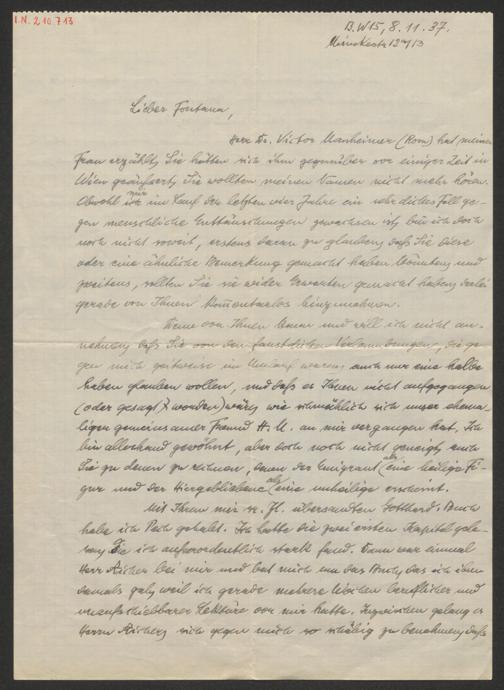 I.N. 210.713
B. W15, 8.11.37.
Lieber Fontana,
Herr Dr. Victor Manheimer (Rom) hat meiner
Frau erzählt, Sie hätten sich ihm gegenüber vor einiger Zeit in
Wien geäußert, Sie wollten meinen Namen nicht mehr hören.
Obwohl mir im Lauf der letzten vier Jahre ein sehr dickes Fell ge-
gen menschliche Enttäuschungen gewachsen ist, bin ich doch
noch nicht soweit, erstens daran zu glauben, daß Sie diese
oder eine ähnliche Bemerkung gemacht haben könnten, und
zweitens, sollten Sie sie wider Erwarten gemacht haben,
gerade von Ihnen kommentarlos hinzunehmen.
von Ihnen und will ich nicht an-
nehmen, daß Sie von den faustdicken Verleumdungen, die ge-
gen mich zeitweise im Umlauf waren, auch nur eine halbe
haben glauben wollen, und daß es Ihnen nicht aufgegangen
(oder gesagt worden) wäre, wie schmählich sich unser ehema-
liger gemeinsamer Freund H. U. an mir vergangen hat. Ich
bin allerhand gewöhnt, aber doch noch nicht geneigt, auch
Sie zu denen zu rechnen, denen der Emigrant als eine heilige Fi-
gur und der Hiergebliebene als eine unheilige erscheint.
Mit Ihrem mir s. Zt. übersandten Gotthard-Buch
habe ich Pech gehabt. Ich hatte die zwei ersten Kapitel gele-
sen, die ich außerordentlich stark fand. Dann war einmal
Herr bei mir und bat mich um das Buch, das ich ihm
damals gab, weil ich gerade mehrere Wochen beruflicher und
unaufschiebbarer Lektüre vor mir hatte. Inzwischen gelang es
Herrn sich gegen mich so schäbig zu benehmen, daß